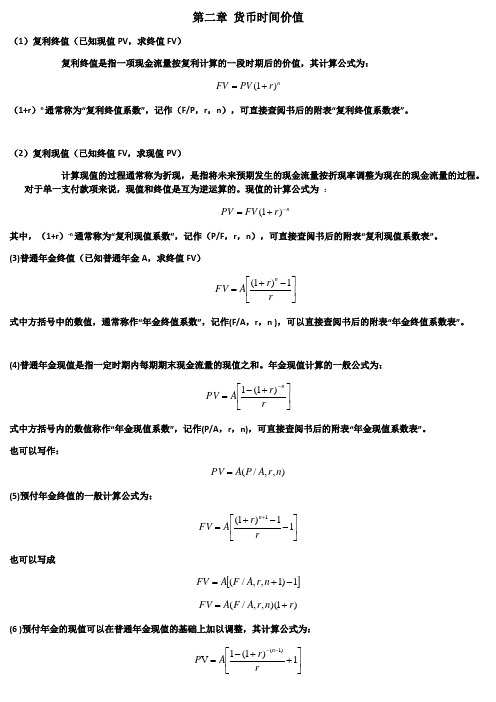 第二章 货币时间价值
（1）复利终值（已知现值 PV，求终值 FV）
复利终值是指一项现金流量按复利计算的一段时期后的价值，其计算公式为：
FV = PV(1 + r)^n
（1+r）^n 通常称为“复利终值系数”，记作（F/P，r，n），可直接查阅书后的附表“复利终值系数表”。
（2）复利现值（已知终值 FV，求现值 PV）
计算现值的过程通常称为折现，是指将未来预期发生的现金流量按折现率调整为现在的现金流量的过程。
对于单一支付款项来说，现值和终值是互为逆运算的。现值的计算公式为 ：
PV = FV(1 + r)^-n
其中，（1+r）^-n 通常称为“复利现值系数”，记作（P/F，r，n），可直接查阅书后的附表“复利现值系数表”。
(3)普通年金终值（已知普通年金 A，求终值 FV）
FV = A[((1 + r)^n − 1) / r]
式中方括号中的数值，通常称作“年金终值系数”，记作(F/A，r，n )，可以直接查阅书后的附表“年金终值系数表”。
(4)普通年金现值是指一定时期内每期期末现金流量的现值之和。年金现值计算的一般公式为：
PV = A[(1 − (1 + r)^-n) / r]
式中方括号内的数值称作“年金现值系数”，记作(P/A，r，n)，可直接查阅书后的附表“年金现值系数表”。
也可以写作：
PV = A(P / A, r, n)
(5)预付年金终值的一般计算公式为：
FV = A[((1 + r)^(n+1) − 1) / r − 1]
也可以写成
FV = A[(F / A, r, n + 1) − 1]
FV = A(F / A, r, n)(1 + r)
(6 )预付年金的现值可以在普通年金现值的基础上加以调整，其计算公式为：
PV = A[(1 − (1 + r)^-(n−1)) / r + 1]